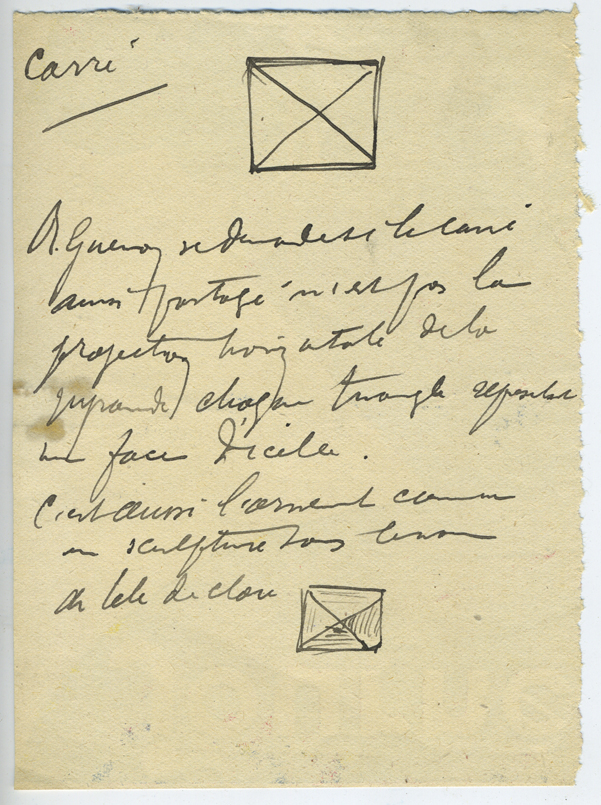 Carré
R. Guenon se demande si le carré
ainsi partagé n'est pas la
projection horizontale de la
pyramide, chaque triangle représentant
une face d'icelle.
C'est aussi l'ornement connu
en sculpture sous le nom
de tête de clou